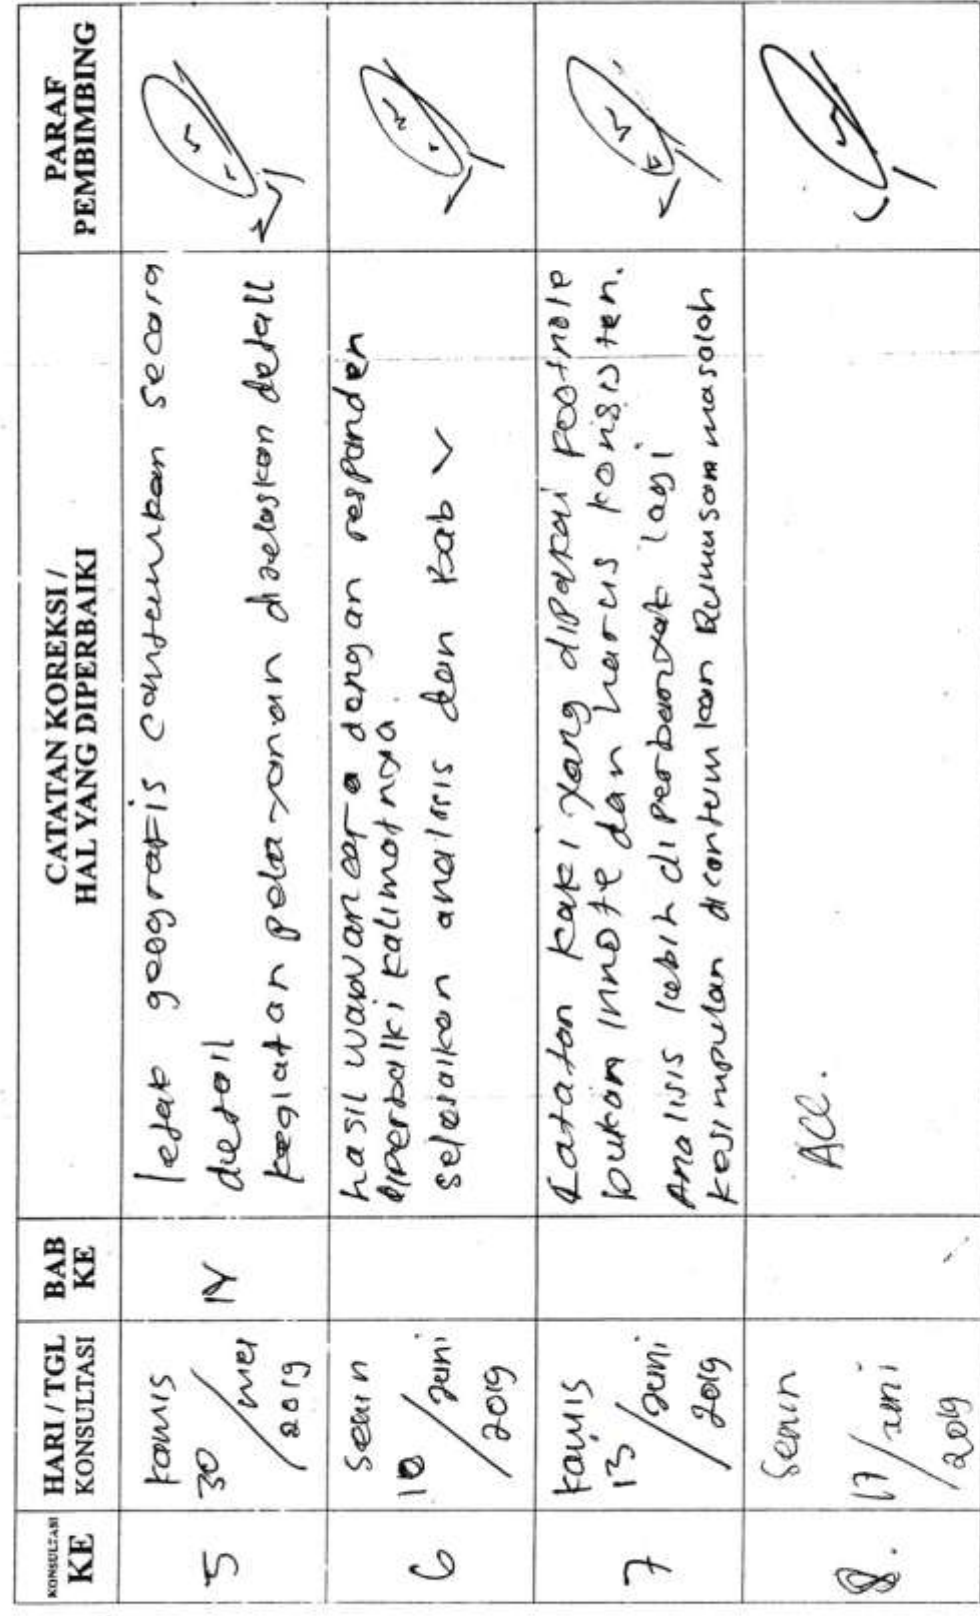 KONSULTASI
KE
HARI / TGL
KONSULTASI
BAB
KE
CATATAN KOREKSI /
HAL YANG DIPERBAIKI
PARAF
PEMBIMBING
5
kamis
30
/ mei
2019
IV
letak geografis cantumkan secara
detail
kegiatan pelayanan dijelaskan detail
6
Senin
10
/ Juni
2019
hasil wawancara dengan responden
diperbaiki kalimatnya
selesaikan analisis dan bab V
7
kamis
13
/ Juni
2019
Catatan kaki yang dipakai footnote
bukan innote dan harus konsisten.
Analisis lebih diperbanyak lagi
kesimpulan dicantumkan Rumusan masalah
8.
Senin
17 / Juni
2019
ACC.